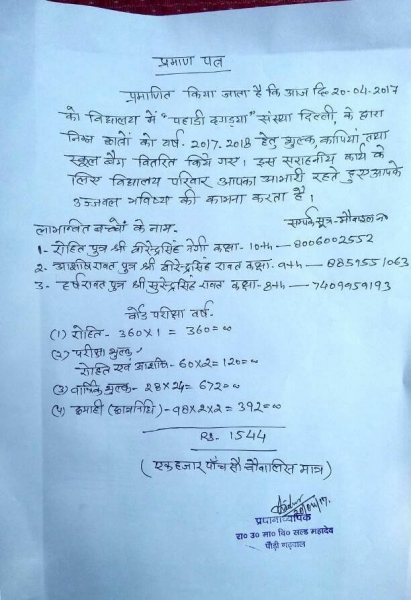 प्रमाण पत्र
प्रमाणित किया जाता है कि आज दि० 20-04-2017
को विद्यालय में "पहाडी दगड्या" संस्था दिल्ली, के द्वारा
निम्न छात्रों को वर्ष- 2017-2018 हेतु शुल्क, कापियां, तथा
स्कूल बैग वितरित किये गए। इस सराहनीय कार्य के
लिए विद्यालय परिवार आपका आभारी रहते हुए आपके
उज्जवल भविष्य की कामना करता है।
लाभान्वित बच्चों के नाम. सम्पर्क सूत्र-मोबाइल न०
1- रोहित पुत्र श्री वीरेन्द्र सिंह नेगी कक्षा- 10th — 8006002552
2- आशीष रावत पुत्र श्री वीरेन्द्र सिंह रावत कक्षा- 9th — 8859551063
3- हर्ष रावत पुत्र श्री सुरेन्द्र सिंह रावत कक्षा- 8th — 7409959193
बोर्ड परीक्षा वर्ष-
(1) रोहित- 360×1 = 360=00
(2) परीक्षा शुल्क
रोहित एवं आशीष- 60×2=120=00
(3) वार्षिक शुल्क- 28×24= 672=00
(4) छमाही (छात्रनिधि) -98×2×2 = 392=00
Rs- 1544
(एक हजार पाँच सौ चौवालिस मात्र)
20/04/17.
प्रधानाध्यापक
रा० उ० मा० वि० सल्ड महादेव
पौड़ी गढ़वाल